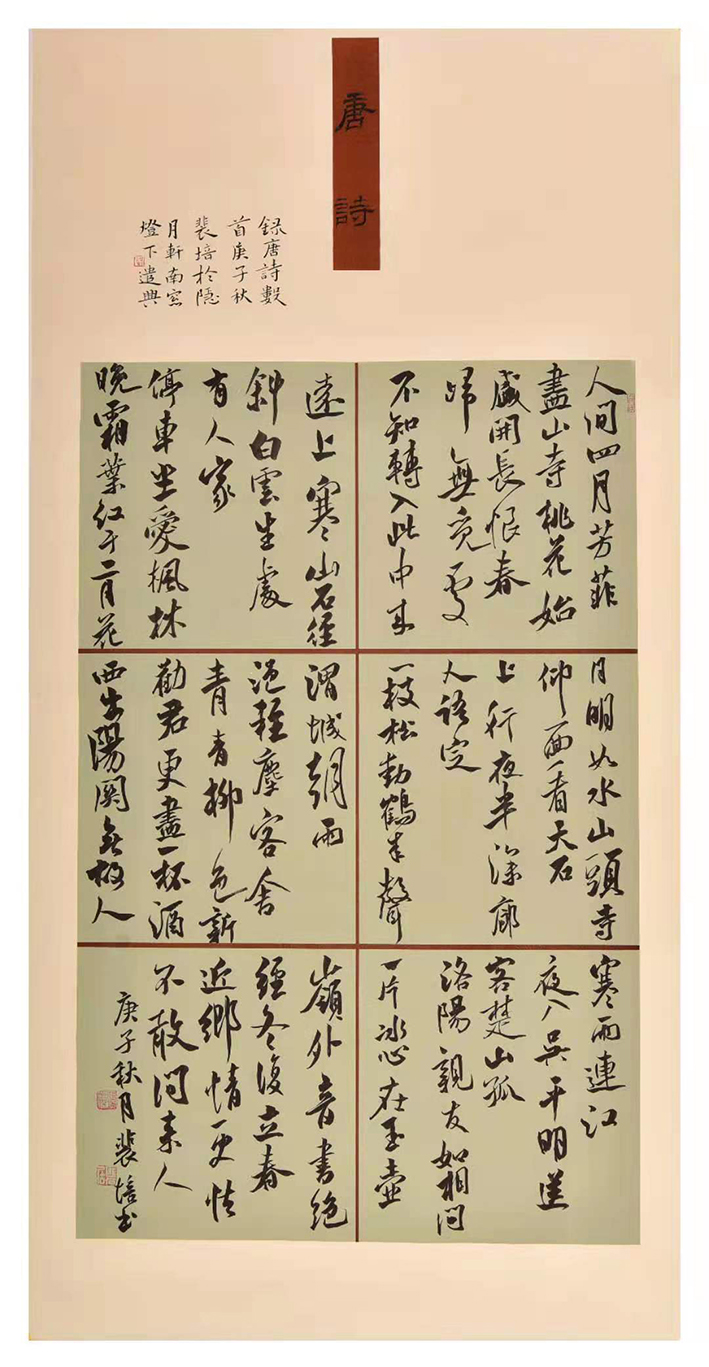 唐詩
録唐詩數
首庚子秋
裴培於隐
月軒南窓
燈下遣興
人间四月芳菲
盡山寺桃花始
盛開長恨春
歸無覓處
不知轉入此中来
月明如水山頭寺
仰面看天石
上行夜半深廊
人語定
一枝松動鶴来聲
寒雨連江
夜入吴平明送
客楚山孤
洛陽親友如相问
一片冰心在玉壺
遠上寒山石徑
斜白雲生處
有人家
停車坐愛楓林
晚霜葉红于二月花
渭城朝雨
浥輕塵客舍
青青柳色新
勸君更盡一杯酒
西出陽関無故人
嶺外音書絶
經冬復立春
近鄉情更怯
不敢问来人
庚子秋月裴培书